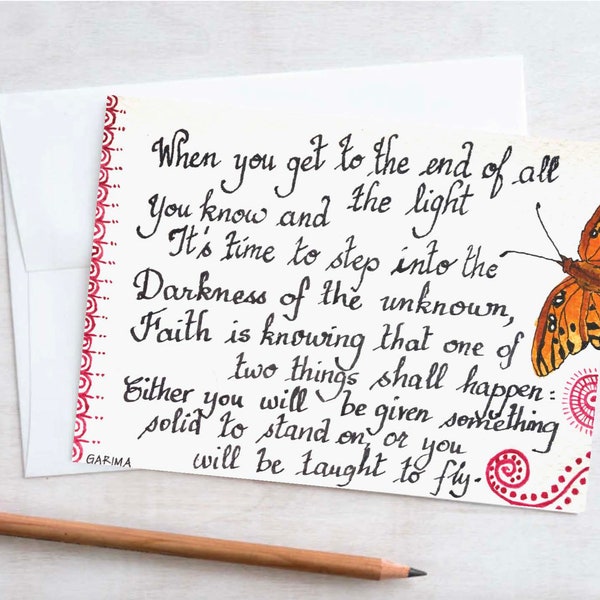 When you get to the end of all
You know and the light
It's time to step into the
Darkness of the unknown,
Faith is knowing that one of
two things shall happen:
Either you will be given something
solid to stand on, or you
will be taught to fly.
GARIMA